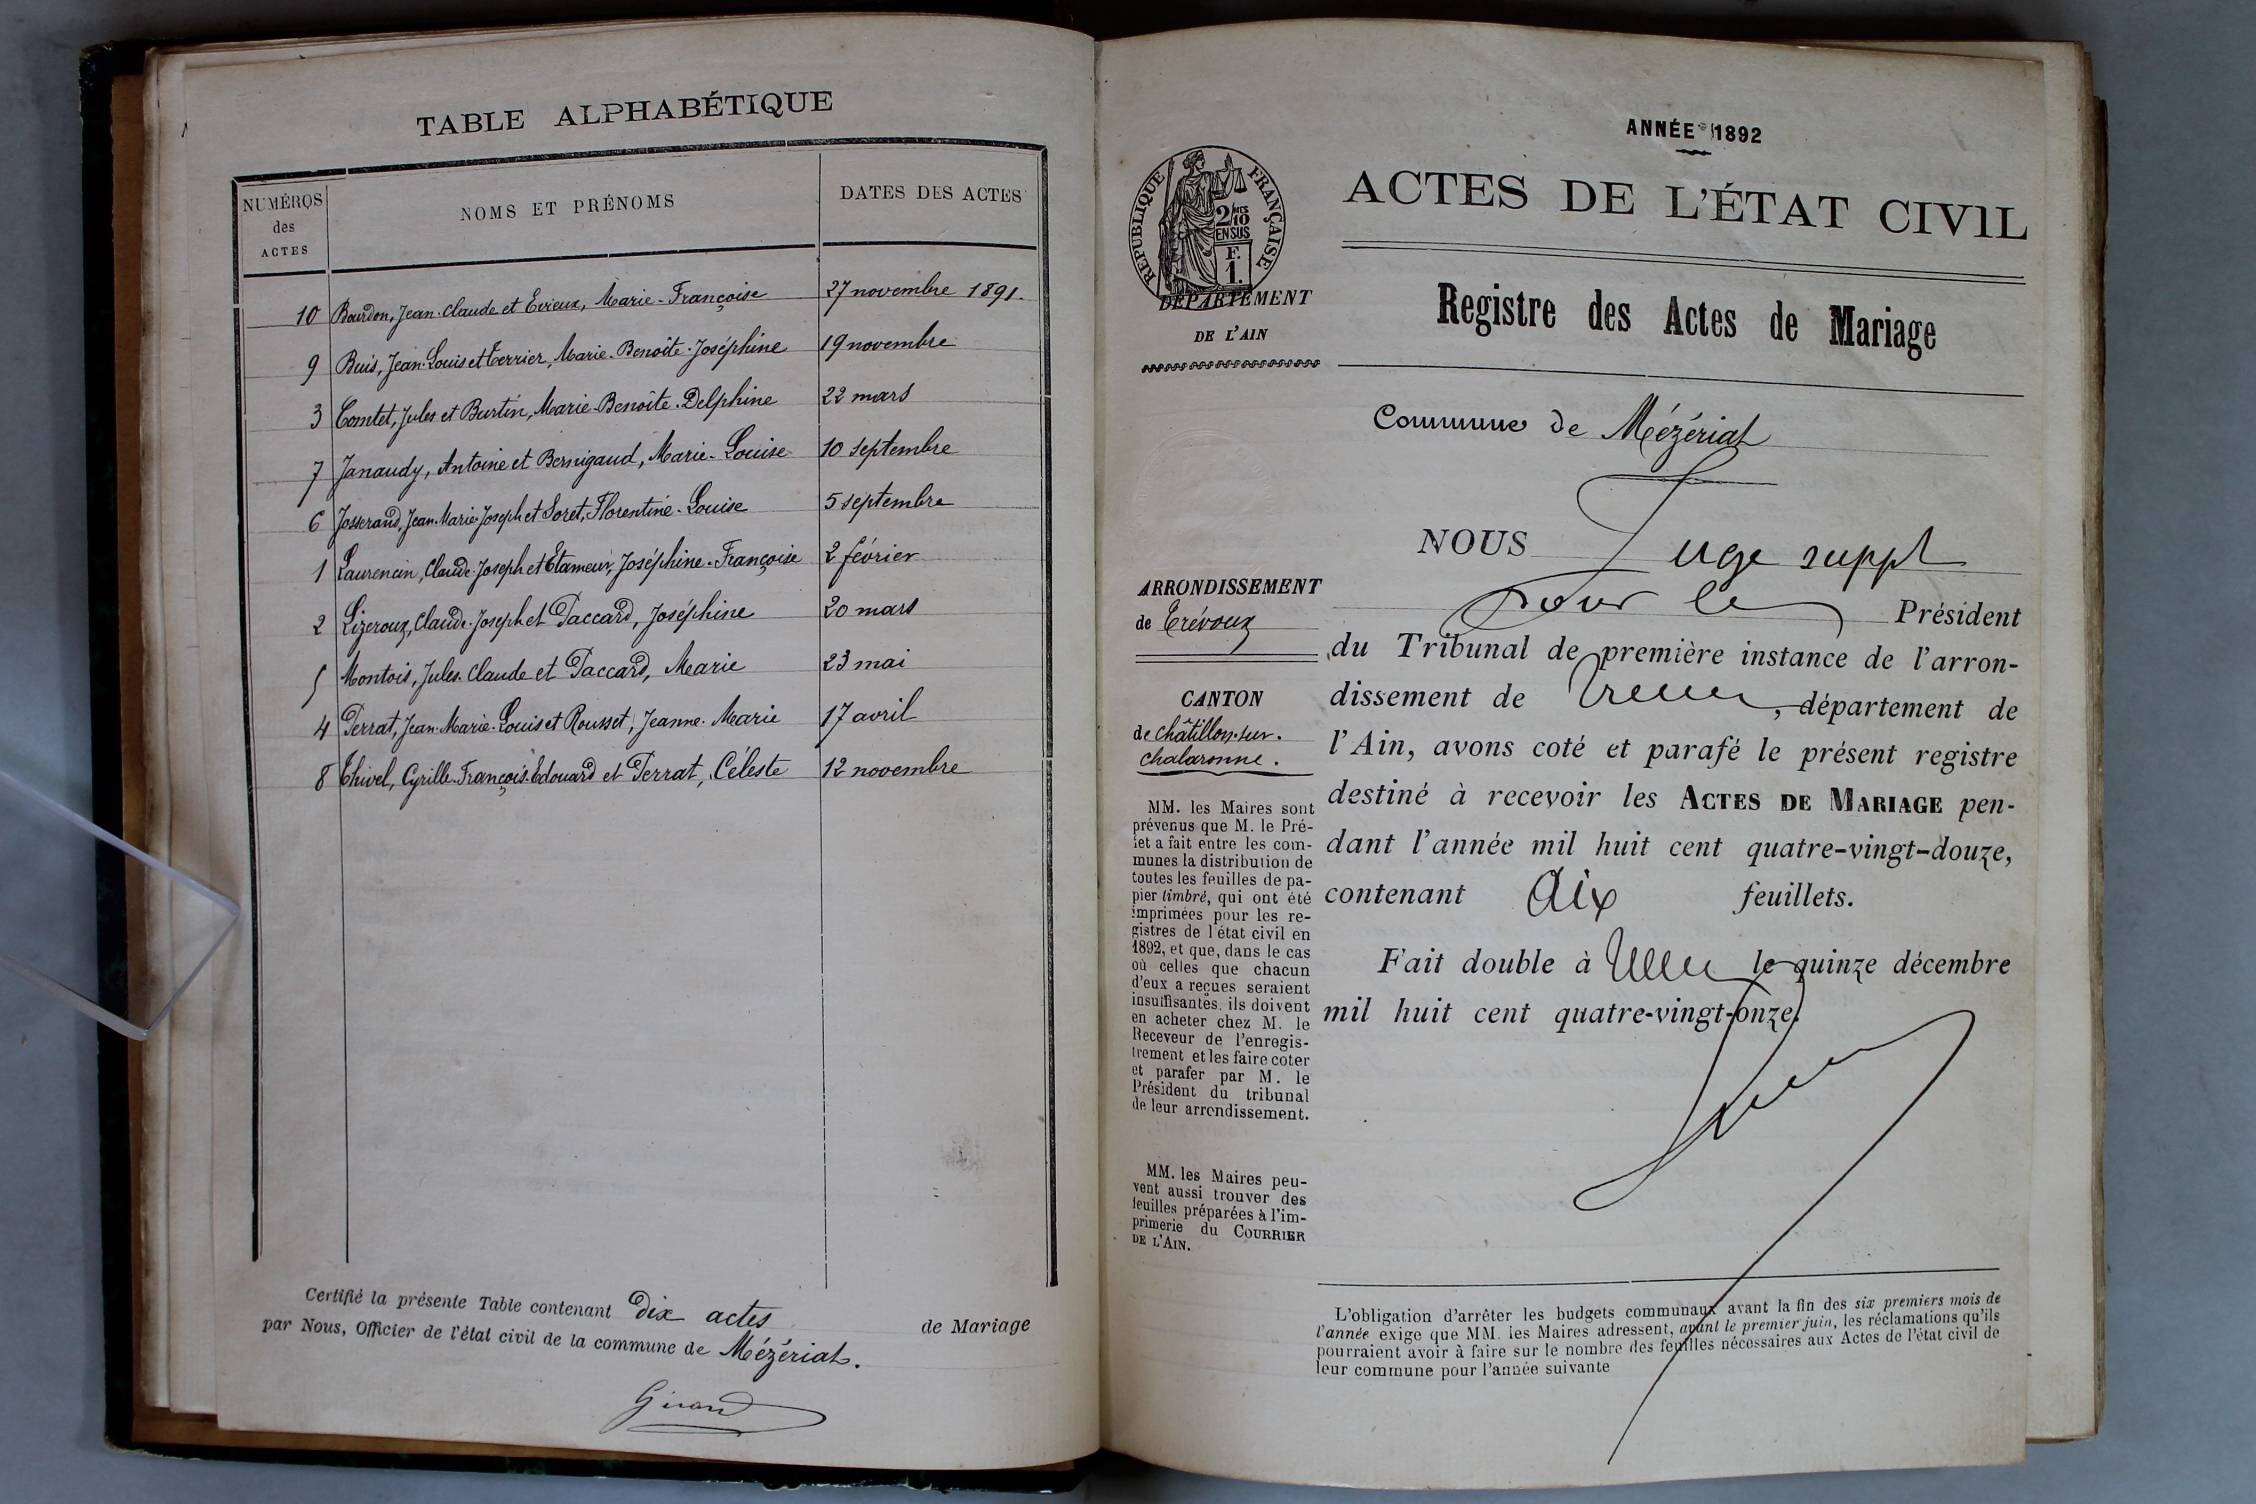 TABLE ALPHABÉTIQUE
NUMÉROS
des
ACTES
NOMS ET PRÉNOMS
DATES DES ACTES
10 Bourdon, Jean-Claude et Evieux, Marie-Françoise 27 novembre 1891.
9 Buis, Jean-Louis et Terrier, Marie-Benoîte-Joséphine 19 novembre
3 Comtet, Jules et Burtin, Marie-Benoîte-Delphine 22 mars
7 Janaudy, Antoine et Bernigaud, Marie-Louise 10 septembre
6 Josserand, Jean-Marie-Joseph et Loret, Florentine-Louise 5 septembre
1 Laurencin, Claude-Joseph et Etameur, Joséphine-Françoise 2 février
2 Lizeroux, Claude-Joseph et Paccard, Joséphine 20 mars
5 Montois, Jules-Claude et Paccard, Marie 23 mai
4 Perrat, Jean-Marie-Louis et Rousset, Jeanne-Marie 17 avril
8 Thivel, Cyrille-François-Edouard et Perrat, Céleste 12 novembre
Certifié la présente Table contenant dix actes de Mariage
par Nous, Officier de l'état civil de la commune de Mézériat.
Girard
ANNÉE 1892
RÉPUBLIQUE FRANÇAISE
2/10
EN SUS
F.
1.
ACTES DE L'ÉTAT CIVIL
DÉPARTEMENT
DE L'AIN
Registre des Actes de Mariage
Commune de Mézériat
ARRONDISSEMENT
de Trévoux
CANTON
de Châtillon-sur-
Chalaronne.
MM. les Maires sont
prévenus que M. le Pré-
fet a fait entre les com-
munes la distribution de
toutes les feuilles de pa-
pier timbré, qui ont été
imprimées pour les re-
gistres de l'état civil en
1892, et que, dans le cas
où celles que chacun
d'eux a reçues seraient
insuffisantes, ils doivent
en acheter chez M. le
Receveur de l'enregis-
trement et les faire coter
et parafer par M. le
Président du tribunal
de leur arrondissement.
MM. les Maires peu-
vent aussi trouver des
feuilles préparées à l'im-
primerie du COURRIER
DE L'AIN.
NOUS Juge suppt
pour le Président
du Tribunal de première instance de l'arron-
dissement de Trévoux, département de
l'Ain, avons coté et parafé le présent registre
destiné à recevoir les ACTES DE MARIAGE pen-
dant l'année mil huit cent quatre-vingt-douze,
contenant dix feuillets.
Fait double à le quinze décembre
mil huit cent quatre-vingt-onze.
L'obligation d'arrêter les budgets communaux avant la fin des six premiers mois de
l'année exige que MM. les Maires adressent, avant le premier juin, les réclamations qu'ils
pourraient avoir à faire sur le nombre des feuilles nécessaires aux Actes de l'état civil de
leur commune pour l'année suivante